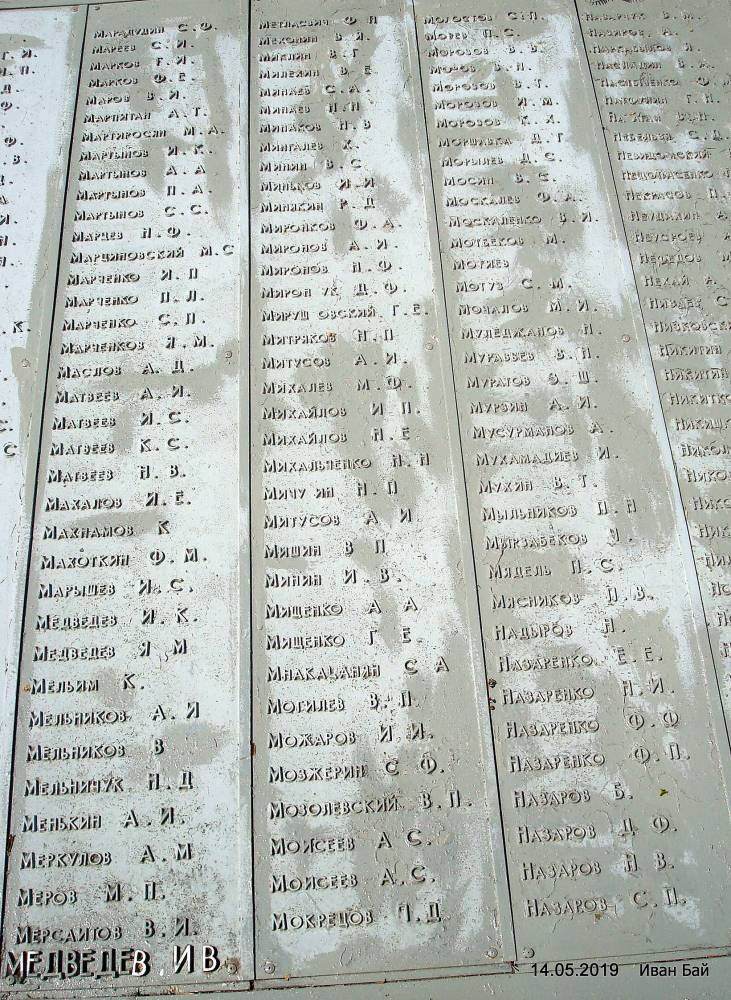 МАРАДУДИН С.Ф.
МАРЕЕВ С.И.
МАРКОВ Г.И.
МАРКОВ Ф.Е.
МАРОВ В.И.
МАРПИТАН А.Т.
МАРТИРОСЯН М.А.
МАРТЫНОВ И.К.
МАРТЫНОВ А.А
МАРТЫНОВ П.А.
МАРТЫНОВ С.С.
МАРЦЕВ Н.Ф.
МАРЦИНОВСКИЙ М.С
МАРЧЕНКО И.П
МАРЧЕНКО П.Л.
МАРЧЕНКО С.П.
МАРЧЕНКОВ Я.М.
МАСЛОВ А.Д.
МАТВЕЕВ А.И.
МАТВЕЕВ И.С.
МАТВЕЕВ К.С.
МАТВЕЕВ Н.В.
МАХАЛОВ И.Е.
МАХНАМОВ К
МАХОТКИН Ф.М.
МАРЫШЕВ И.С.
МЕДВЕДЕВ И.К.
МЕДВЕДЕВ Я М
МЕЛЬИМ К.
МЕЛЬНИКОВ А.И
МЕЛЬНИКОВ В
МЕЛЬНИЧУК Н.Д
МЕНЬКИН А.И.
МЕРКУЛОВ А.М
МЕРОВ М.П.
МЕРСАИТОВ В.И.
МЕДВЕДЕВ ИВ
МЕТЛАСВИЧ Ф П
МЕХОНИН В.Я.
МИГЛИН В.Г
МИЛЕХИН В.Е.
МИНАЕВ С.А.
МИНАЕВ Н.Н
МИНАКОВ Н.В
МИНГАЛЕВ Х.
МИНИН В.С
МИНЬКОВ И.И
МИНЯКИН Р.Д
МИРОНКОВ Ф.А
МИРОНОВ А.И.
МИРОНОВ Н.Ф.
МИРОН УК Д.Ф.
МИРУШ ОВСКИЙ Г.Е.
МИТРЯКОВ Н.П
МИТУСОВ А.И.
МИХАЛЕВ М.Ф.
МИХАЙЛОВ И П.
МИХАЙЛОВ Н.Е
МИХАЛЬЧЕНКО Н.Н
МИЧУ ИН Н.П
МИТУСОВ А И
МИШИН В П
МИНИН И.В.
МИЩЕНКО А А
МИЩЕНКО Г Е.
МНАКАЦАНИН С А
МОГИЛЕВ В.П.
МОЖАРОВ И.И.
МОЗЖЕРИН С.Ф.
МОЗОЛЕВСКИЙ В.П.
МОИСЕЕВ А С.
МОИСЕЕВ А.С.
МОКРЕЦОВ Д.
МОГОСТОВ С.П.
МОРЕВ П.С.
МОРОЗОВ В.В.
В.Н.
МОРОЗОВ В.Т.
МОРОЗОВ И.М.
МОРОЗОВ К.Х
МОРШАВКА Д.Г
МОРЫЛЕВ Д.С.
МОСИН В.С.
МОСКАЛЕВ Ф.А.
МОСКАЛЕНКО В.И.
МОТБЕКОВ М.
МОТИЕВ
МОТУЗ С.М.
МОЧАЛОВ М.И.
МУЛЕДЖАНОВ Н.
МУРАВЬЕВ В.П.
МУРАТОВ Э.Ш.
МУРЗИН А.И.
МУСУРМАНОВ А.
МУХАМАДИЕВ И.
МУХИН В.Т.
МЫЛЬНИКОВ П Н
МЫРЗАБЕКОВ
МЯДЕЛЬ П.С.
МЯСНИКОВ П.В.
НАДЫРОВ Н.
НАЗАРЕНКО Е.Е.
НАЗАРЕНКО Н.И.
НАЗАРЕНКО Ф.Ф
НАЗАРЕНКО Ф.П.
НАЗАРОВ Б.
НАЗАРОВ Д Ф.
НАЗАРОВ Н В.
НАЗАРОВ С.П.
НАЗАРЧУК В.М.
НАЗАРОВ А.
НАСЛАДИН В.А.
Г.Н.
НЕБЕЛЬЕВ С.Д.
НЕВИДОМСКИЙ
НЕКРАСОВ П.
НЕУДАХИН А.
НЕУСРОЕВ
НЕФЕДОВ М
НЕХАЙ А.
НИВАЕВ С
НИЗКОВСКИ
НИКИТИН
НИКИТИН
НИКИТКО
14.05.2019 Иван Бай